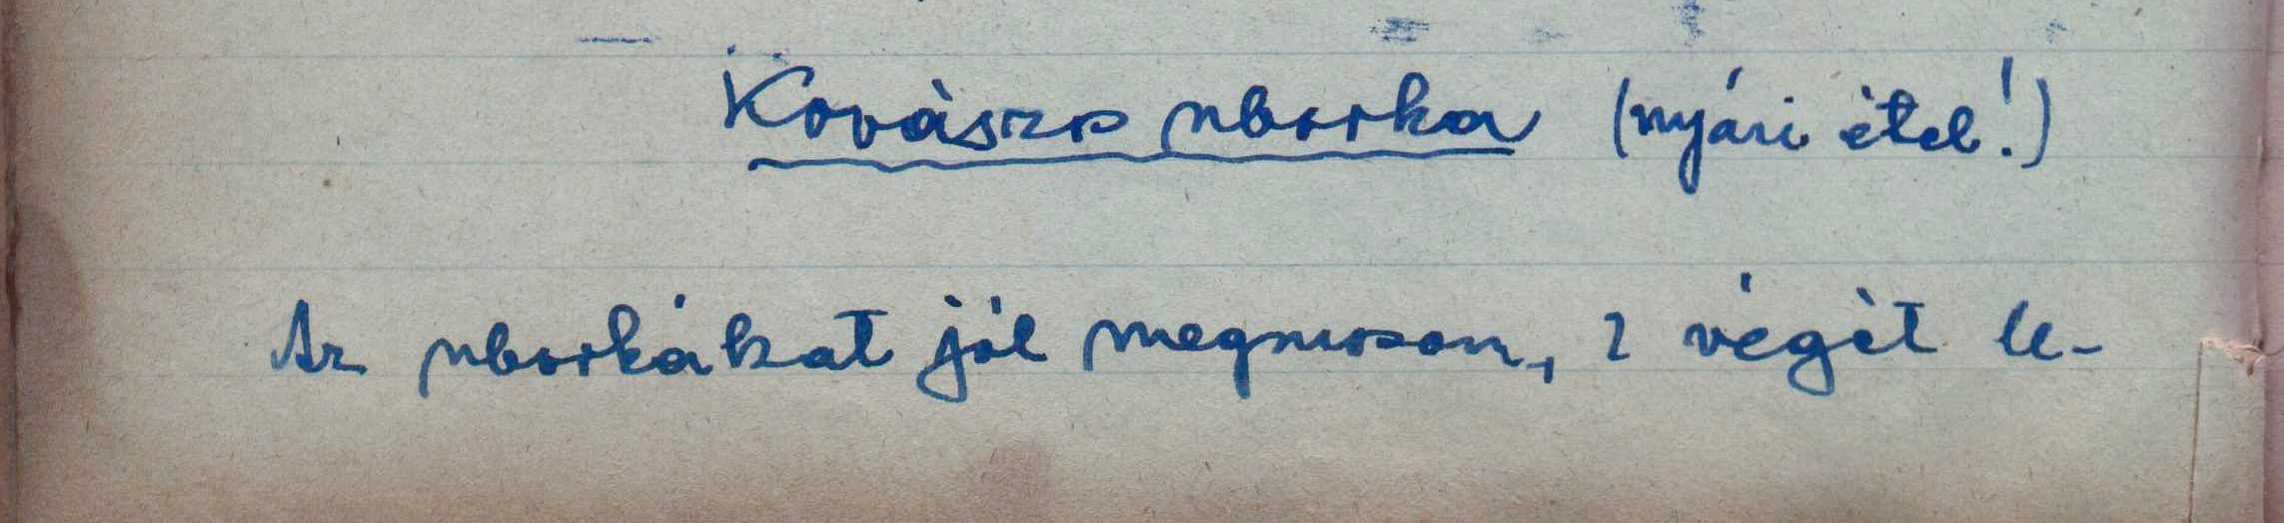 Kovászos uborka (nyári étel!)
Az uborkákat jól megmosom, 2 végét le-